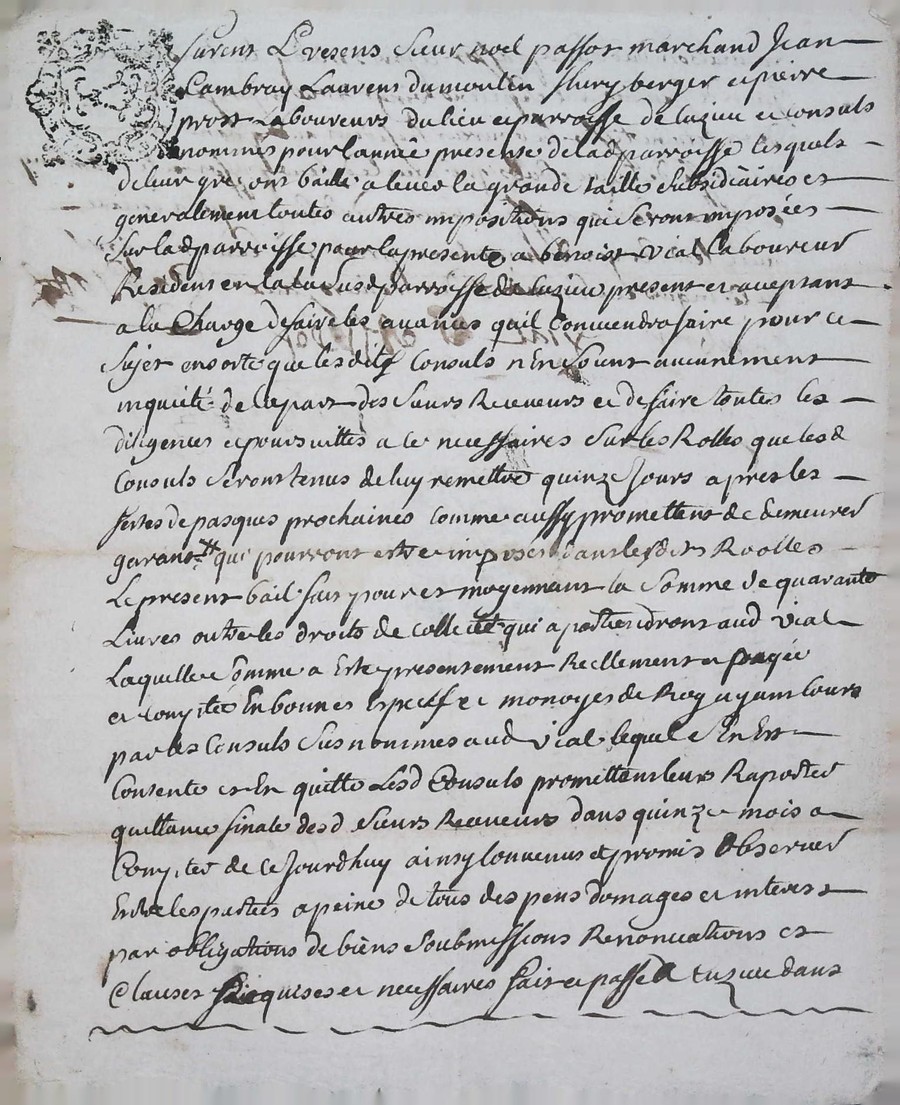 furent Presens sieur noel passot marchand Jean
Cambray Laurens dumoulin fleury berger et pierre
prost Laboureurs du lieu et parroisse de luzieu et consuls
nommés pour lannée presente de lad parroisse lesquels
de leur gre ont baillé a lever la grande taille subsidiaires et
generalement toutes autres impositions qui seront imposées
sur lad parroisse pour la presente a benoist vial laboureur
Resident en la susd parroisse de luzieu present et aceptant
a la Charge de faire les avances quil Conviendra faire pour ce
sujet en sorte que lesdits Consuls n En soient aucunement
inquieté de la part des sieurs Receveurs et de faire toutes les
diligences et poursuittes a ce necessaires sur les Rolles que lesd
Consuls seront tenus de luy remettre quinze jours apres les
festes de pasques prochaines comme aussy promettent de demeurer
garant qui pourront estre imposés dans lesdits Roolles
Le present bail fait pour et moyennant la somme de quarante
Livres outre les droits de collecte qui apartiendront aud vial
Laquelle somme a Esté presentement Reellement payée
et comptée En bonnes Especes et monoyes de Roy ayant cours
par les Consuls susnommes aud vial lequel s En Est
Contenté et En quitte Lesd Consuls promettant leurs Raporter
quittance finale desd sieurs Receveurs dans quinze mois a
Compter de ce Jourdhuy ainsy convenus et promis Observer
Entre les parties a peine de tous despens domages et interest
par obligations de biens soubmissions Renonciations et
Clauses Requises et necessaires fait et passé A luzieu dans